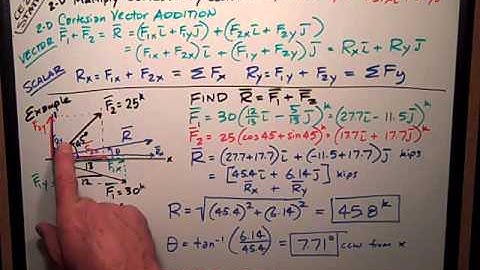 CE
STATI
2-D Multiply
2-D Cartesian Vector ADDITION
VECTOR F̄1 + F̄2 = R̄ = (F1x ī + F1y j̄) + (F2x ī + F2y j̄)
= (F1x + F2x) ī + (F1y + F2y) j̄ = Rx ī + Ry j̄
SCALAR Rx = F1x + F2x = ΣFx Ry = F1y + F2y = ΣFy
Example
FIND R̄ = F̄1 + F̄2
F̄2 = 25k
F̄1 = 30(12/13 ī - 5/13 j̄)k = (27.7 ī - 11.5 j̄)k
F̄2 = 25(cos45 + sin45)k = (17.7 ī + 17.7 j̄)k
R̄
θ
x
F1x
13
12
F1y
F̄1 = 30k
R̄ = (27.7 + 17.7) ī + (-11.5 + 17.7) j̄ kips
= [45.4 ī + 6.14 j̄] kips
Rx + Ry
R = √(45.4)² + (6.14)² = 45.8k
θ = tan⁻¹(6.14/45.4) = 7.71° ccw from x